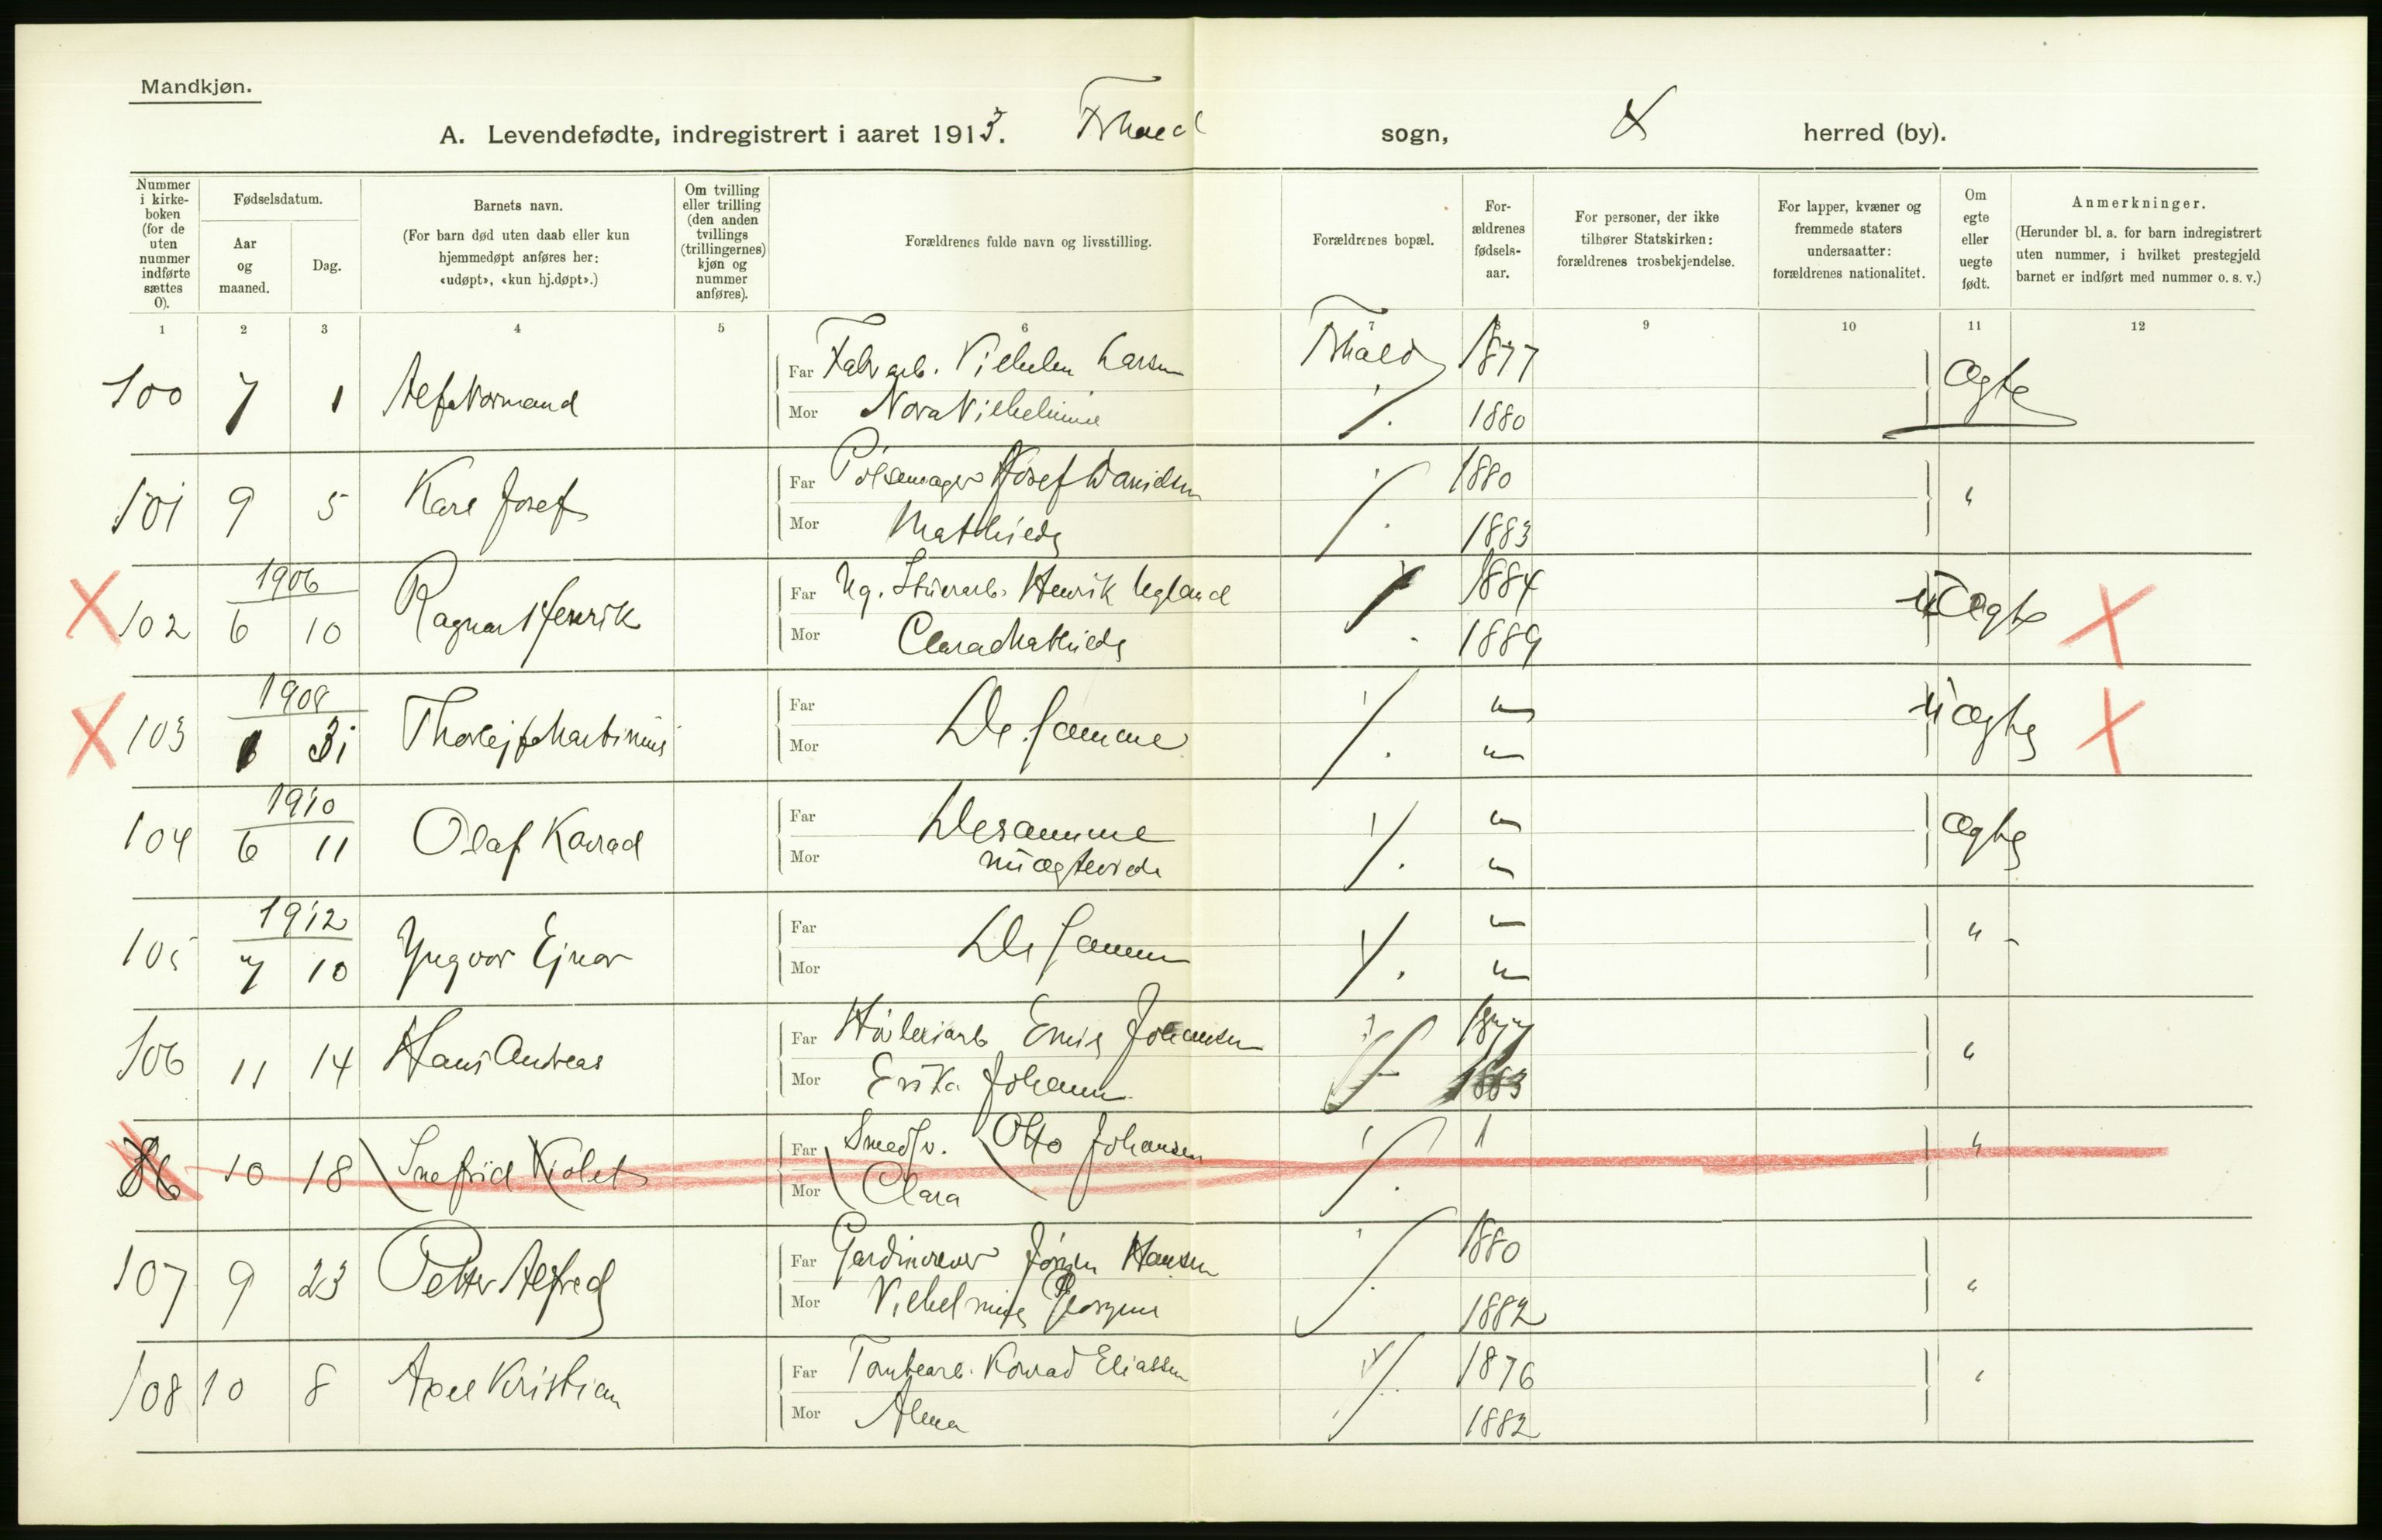 Mandkjøn.
A. Levendefødte, indregistrert i aaret 1913. Frhald sogn, herred (by).
Nummer i kirke-boken (for de uten nummer indførte sættes 0).
Fødselsdatum.
Aar og maaned.
Dag.
Barnets navn.
(For barn død uten daab eller kun hjemmedøpt anføres her: «udøpt», «kun hj.døpt».)
Om tvilling eller trilling (den anden tvillings (trillingernes) kjøn og nummer anføres).
Forældrenes fulde navn og livsstilling.
Forældrenes bopæl.
For-ældrenes fødsels-aar.
For personer, der ikke tilhører Statskirken: forældrenes trosbekjendelse.
For lapper, kvæner og fremmede staters undersaatter: forældrenes nationalitet.
Om egte eller uegte født.
Anmerkninger.
(Herunder bl. a. for barn indregistrert uten nummer, i hvilket prestegjeld barnet er indført med nummer o. s. v.)
1 2 3 4 5 6 7 8 9 10 11 12
100 7 1 Alf Normand Far Fabrarb. Vilhelm Larsen Frhald 1877 Ægte
Mor Nora Vilhelmine 1880
101 9 5 Karl Josef Far Pølsemager Josef Davidsen 1880 "
Mor Mathilde 1883
1906
102 6 10 Ragnar Henrik Far Ug. Henrik Ugland 1884 uægte
Mor Clara Mathilde 1889
1908
103 31 Thorleif Martinius Far De samme " uægte
Mor "
1910
104 6 11 Olaf Konrad Far De samme " Ægte
Mor nu ægteviede "
1912
105 7 10 Yngvar Ejnar Far De samme " "
Mor "
106 11 14 Hans Andreas Far Emil Johansen 1877 "
Mor Erika Johanne 1883
86 10 18 Snefrid Violet Far Smedsv. Otto Johansen "
Mor Clara
107 9 23 Petter Alfred Far Jørgen Hansen 1880 "
Mor Vilhelmine Georgine 1882
108 10 8 Axel Kristian Far Tomtearb. Konrad Eliassen 1876 "
Mor Alma 1882